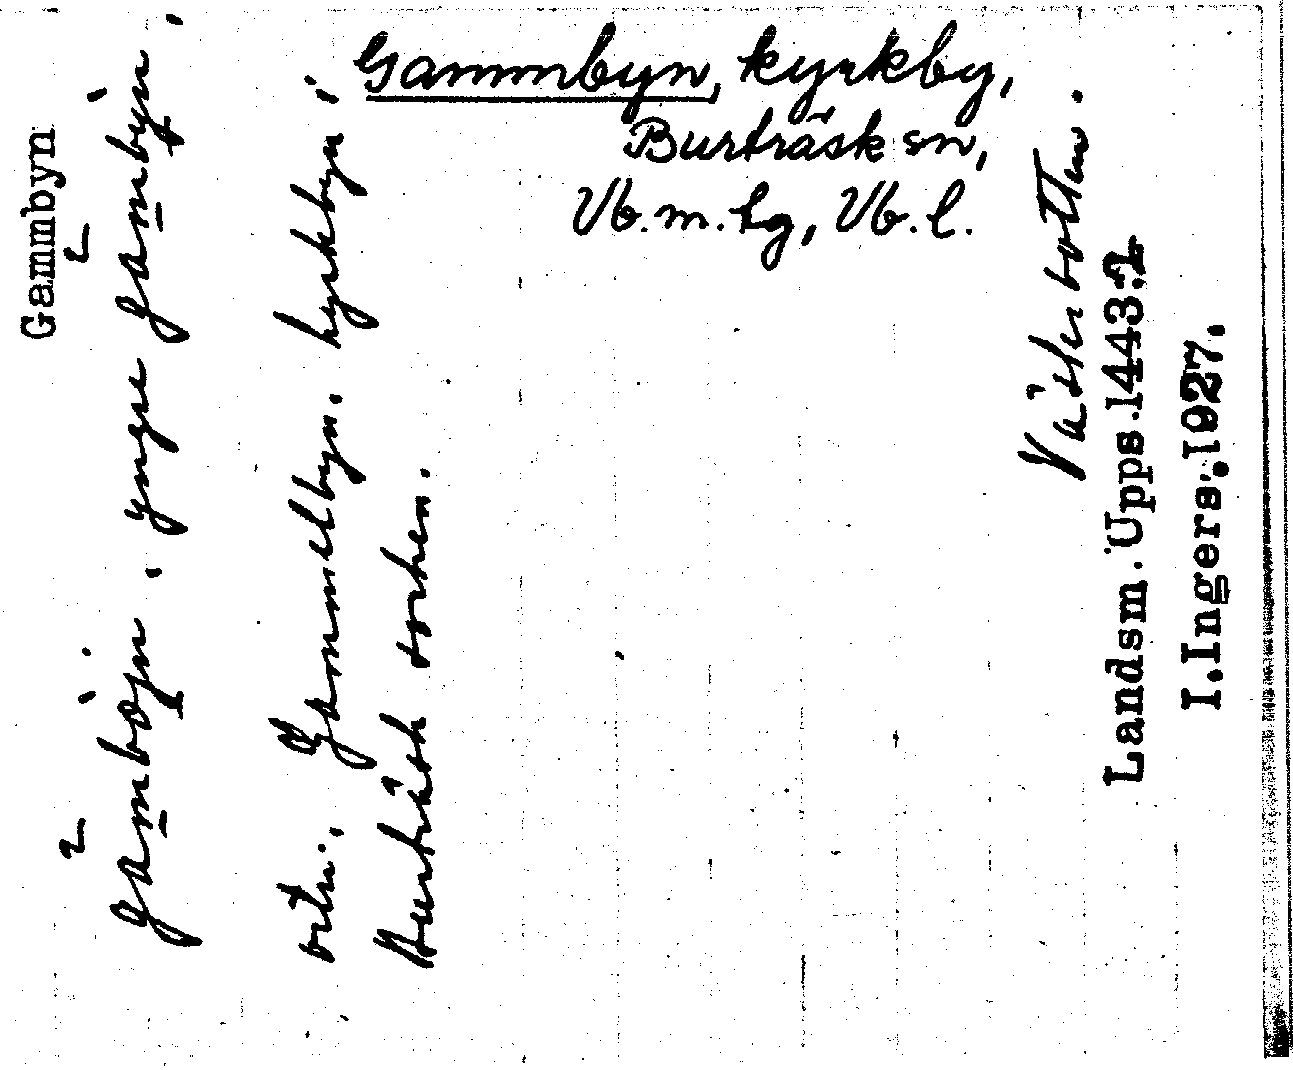 Gammbyn, kyrkby,
Burträsk sn,
Vb. m. hg, Vb. l.
Gammbyn
yngre
ortn. Gammelbyn. kyrkbyn i
Burträsk socken.
Västerbotten.
Landsm. Upps. 1443:2
I. Ingers. 1927.